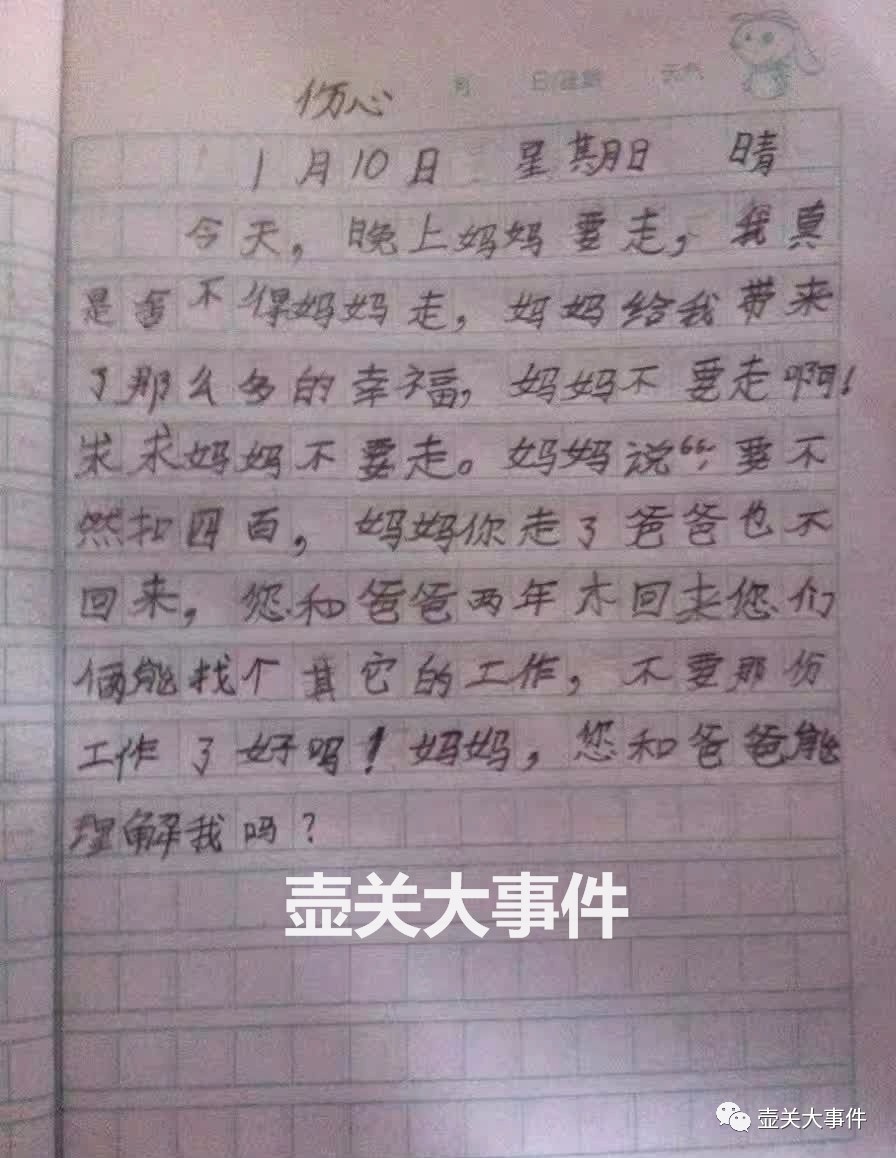 月 日 星期 天气
伤心
1月10日 星期日 晴
今天，晚上妈妈要走，我真
是舍不得妈妈走，妈妈给我带来
了那么多的幸福，妈妈不要走啊！
求求妈妈不要走。妈妈说“，要不
然扣四百，妈妈你走了爸爸也不
回来，您和爸爸两年木回来您们
俩能找个其它的工作，不要那份
工作了好吗！妈妈，您和爸爸能
理解我吗？
壶关大事件
壶关大事件